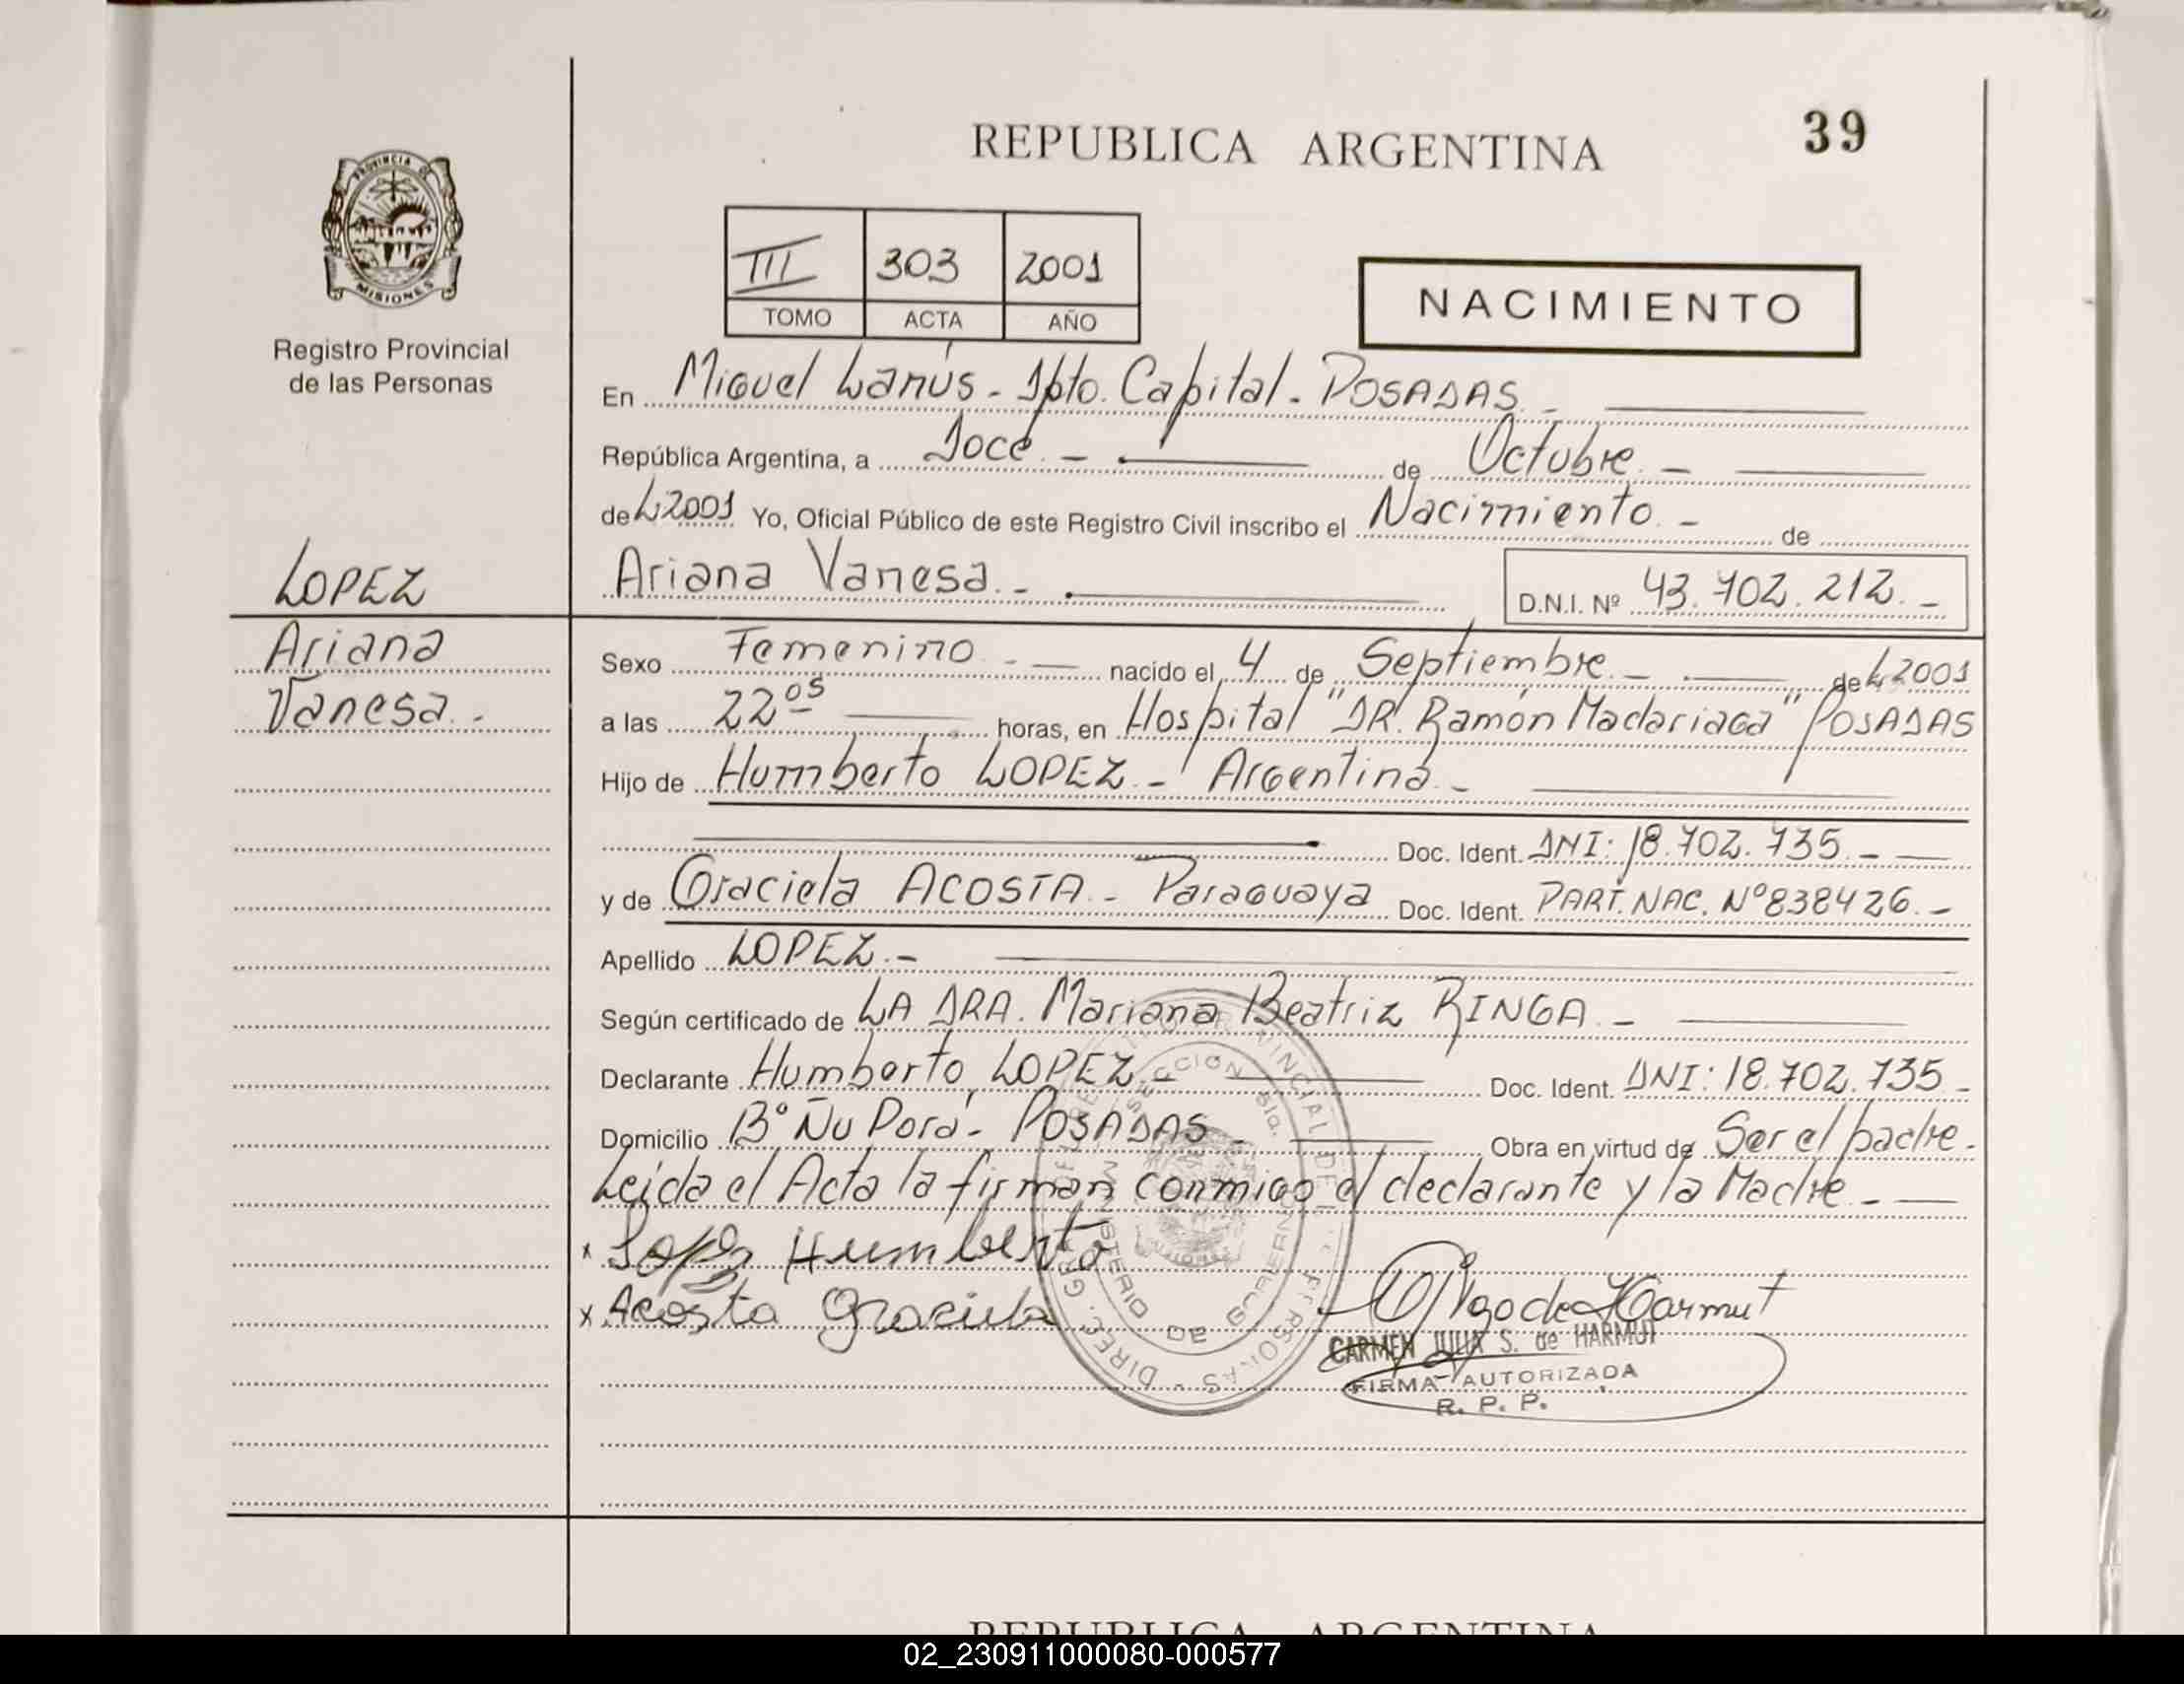 REPUBLICA ARGENTINA
39
PROVINCIA DE
MISIONES
Registro Provincial
de las Personas
III 303 2001
TOMO ACTA AÑO
NACIMIENTO
En Miguel Lanús - Dpto. Capital - POSADAS -
República Argentina, a Doce. - de Octubre. -
de 2001 Yo, Oficial Público de este Registro Civil inscribo el Nacimiento - de
LOPEZ
Ariana
Vanesa. -
Ariana Vanesa. -
D.N.I. Nº 43.702.212. -
Sexo Femenino - nacido el 4 de Septiembre. - de 2001
a las 22 05 horas, en Hospital "DR. Ramón Madariaga" POSADAS
Hijo de Humberto LOPEZ. - Argentina. -
Doc. Ident. DNI: 18.702.735. -
y de Graciela ACOSTA. - Paraguaya Doc. Ident. PART. NAC. Nº 838426. -
Apellido LOPEZ. -
Según certificado de LA DRA. Mariana Beatriz RINGA. -
Declarante Humberto LOPEZ - Doc. Ident. DNI: 18.702.735 -
Domicilio Bº Ñu Porá - POSADAS - Obra en virtud de Ser el padre -
Leída el Acta la firman conmigo el declarante y la Madre. -
x Lopez Humberto
x Acosta Graciela
CARMEN JULIA S. de HARMUT
FIRMA AUTORIZADA
R. P. P.
REPUBLICA ARGENTINA
02_230911000080-000577